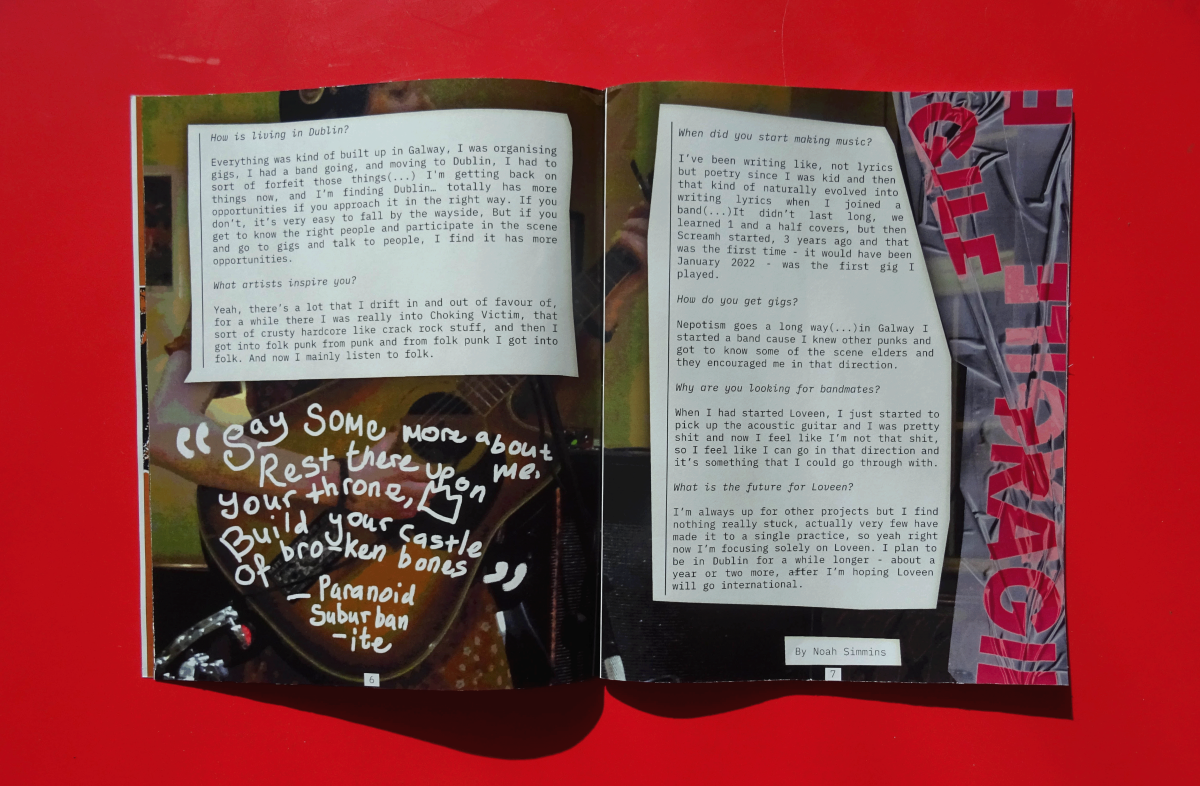 How is living in Dublin?
Everything was kind of built up in Galway, I was organising
gigs, I had a band going, and moving to Dublin, I had to
sort of forfeit those things(...) I'm getting back on
things now, and I'm finding Dublin… totally has more
opportunities if you approach it in the right way. If you
don't, it's very easy to fall by the wayside, But if you
get to know the right people and participate in the scene
and go to gigs and talk to people, I find it has more
opportunities.
What artists inspire you?
Yeah, there's a lot that I drift in and out of favour of,
for a while there I was really into Choking Victim, that
sort of crusty hardcore like crack rock stuff, and then I
got into folk punk from punk and from folk punk I got into
folk. And now I mainly listen to folk.
“Say Some more about me,
Rest there upon
your throne,
Build your castle
of broken bones”
— Paranoid
Suburban
-ite
6
When did you start making music?
I've been writing like, not lyrics
but poetry since I was kid and then
that kind of naturally evolved into
writing lyrics when I joined a
band(...)It didn't last long, we
learned 1 and a half covers, but then
Screamh started, 3 years ago and that
was the first time - it would have been
January 2022 - was the first gig I
played.
How do you get gigs?
Nepotism goes a long way(...)in Galway I
started a band cause I knew other punks and
got to know some of the scene elders and
they encouraged me in that direction.
Why are you looking for bandmates?
When I had started Loveen, I just started to
pick up the acoustic guitar and I was pretty
shit and now I feel like I'm not that shit,
so I feel like I can go in that direction and
it's something that I could go through with.
What is the future for Loveen?
I'm always up for other projects but I find
nothing really stuck, actually very few have
made it to a single practice, so yeah right
now I'm focusing solely on Loveen. I plan to
be in Dublin for a while longer - about a
year or two more, after I'm hoping Loveen
will go international.
By Noah Simmins
7